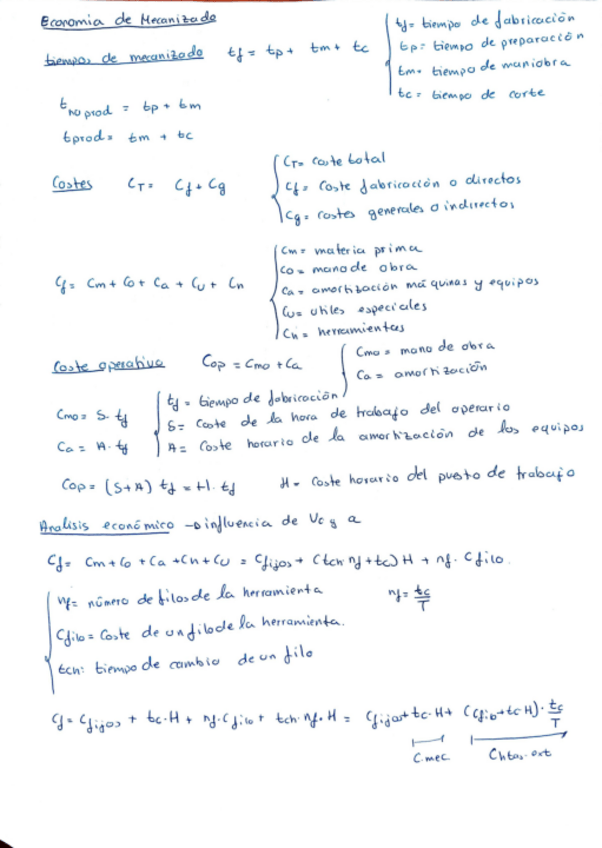 Economia de Mecanizado
tiempos de mecanizado tf = tp + tm + tc { tf = tiempo de fabricación
tp = tiempo de preparación
tm = tiempo de maniobra
tc = tiempo de corte
t no prod = tp + tm
tprod = tm + tc
Costes CT = Cf + Cg { CT = coste total
Cf = Coste fabricación o directos
Cg = costes generales o indirectos
Cf = Cm + Co + Ca + Cu + Cn { Cm = materia prima
Co = mano de obra
Ca = amortización máquinas y equipos
Cu = utiles especiales
Cn = herramientas
Coste operativo Cop = Cmo + Ca { Cmo = mano de obra
Ca = amortización
Cmo = S · tf { tf = tiempo de fabricación
S = Coste de la hora de trabajo del operario
Ca = A · tf A = Coste horario de la amortización de los equipos
Cop = (S + A) tf = H · tf H = Coste horario del puesto de trabajo
Analisis económico → influencia de Vc y a
Cf = Cm + Co + Ca + Cn + Cu = Cfijos + (tcn nf + tc) H + nf · Cfilo
nf = número de filos de la herramienta nf = tc/T
Cfilo = Coste de un filo de la herramienta.
tcn: tiempo de cambio de un filo
Cf = Cfijos + tc · H + nf · Cfilo + tch · nf · H = Cfijos + tc · H + (Cfilo + tc H) · tc/T
C.mec Chtas. ext